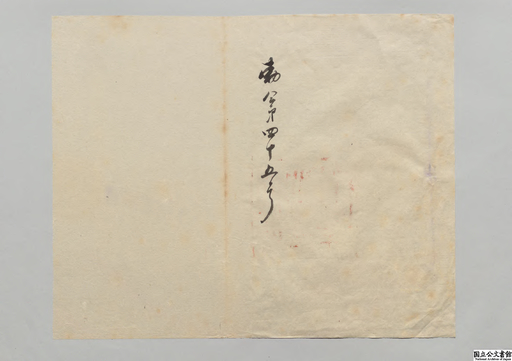 勅第四十五号
国立公文書館
National Archives of Japan